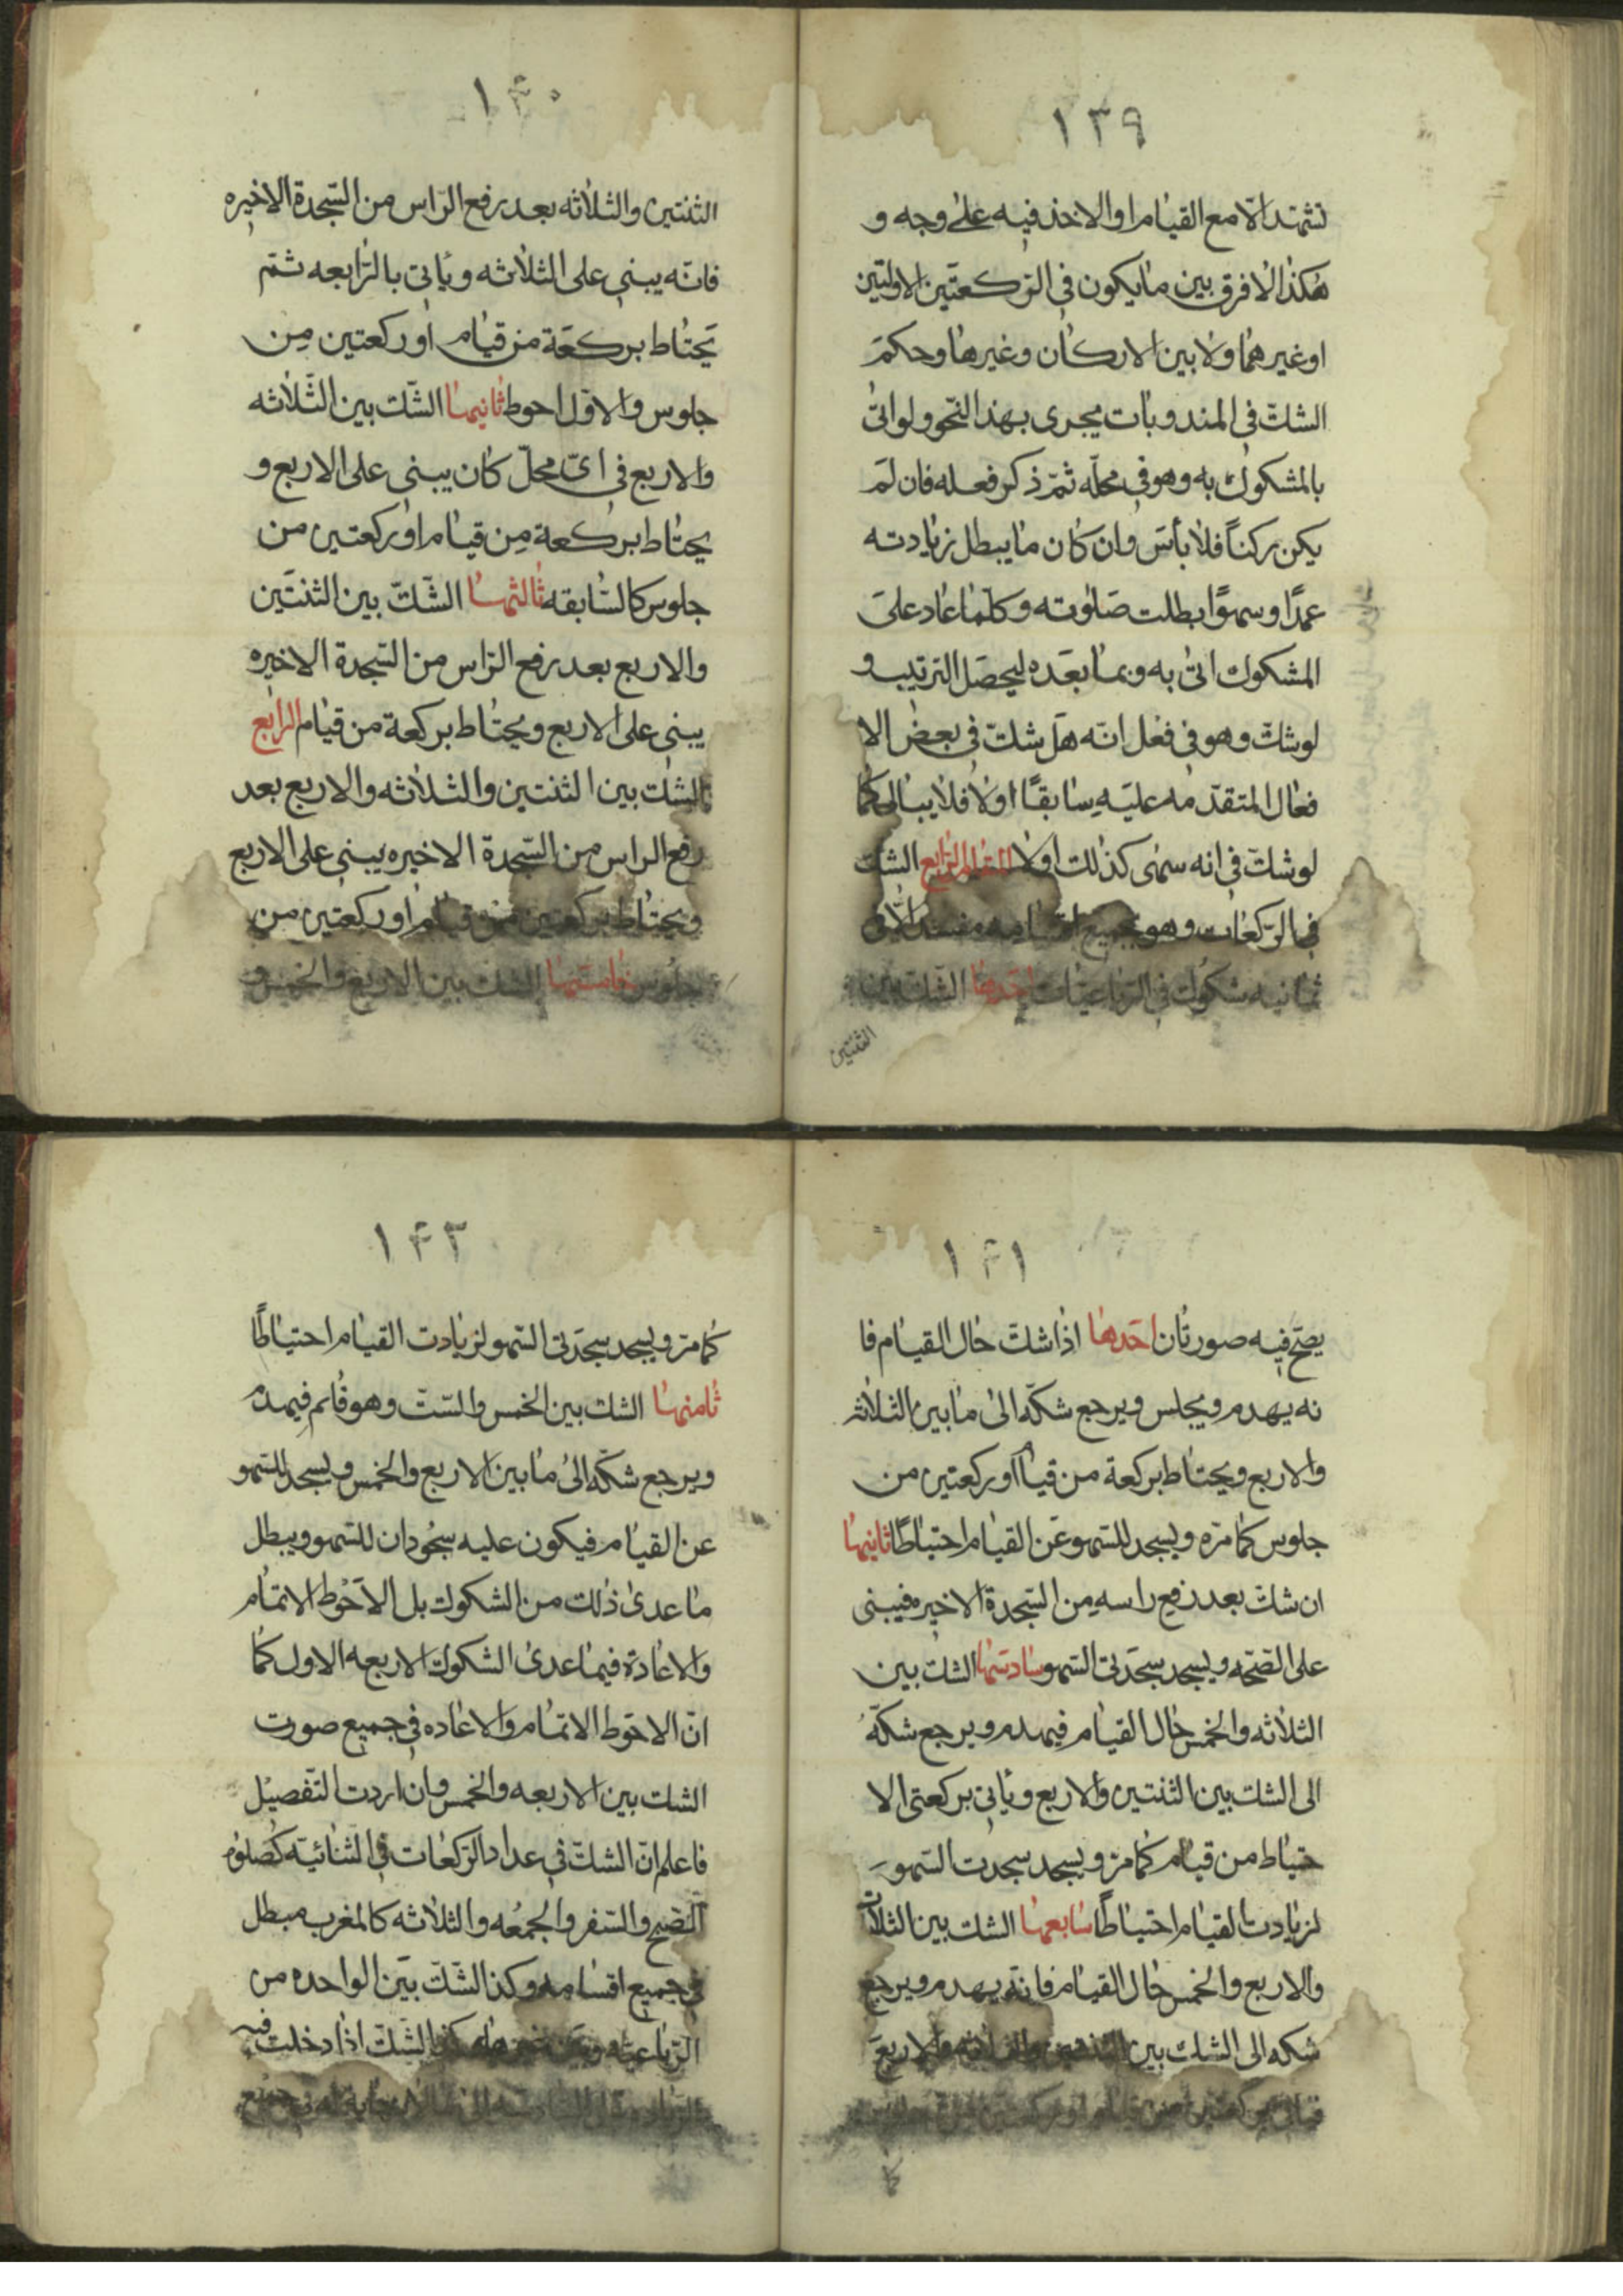 ١٣٩
تشهد الا مع القيام او الاخذ فيه على وجه و
هكذا لا فرق بين ما يكون فى الركعتين الاولتين
او غيرهما ولا بين الاركان وغيرها وحكم
الشك فى المندوبات يجرى بهذا النحو ولو اتى
بالمشكوك به وهو فى محله ثم ذكر فعله فان لم
يكن ركناً فلا بأس وان كان ما يبطل زيادته
عمدًا وسهوًا بطلت صلوته وكلما عاد على
المشكوك اتى به وبما بعده ليحصل الترتيب و
لو شك وهو فى فعل انه هل شك فى بعض الا
فعال المتقدمه عليه سابقًا اولا فلا يبالى كما
لو شك فى انه سهى كذلك اولا المقام الرابع الشك
فى الركعات وهو بجميع مفسد الا فى
ثمانيه شكوك فى الرباعيات احدها الشك بين
الثنتين
١۴٠
الثنتين والثلاثه بعد رفع الراس من السجدة الاخيره
فانه يبنى على الثلاثه وياتى بالرابعه ثم
يحتاط بركعة من قيام او ركعتين من
جلوس والاول احوط ثانيها الشك بين الثلاثه
والاربع فى اى محل كان يبنى على الاربع و
يحتاط بركعة من قيام او ركعتين من
جلوس كالسابقه ثالثها الشك بين الثنتين
والاربع بعد رفع الراس من السجدة الاخيره
يبنى على الاربع ويحتاط بركعة من قيام الرابع
الشك بين الثنتين والثلاثه والاربع بعد
رفع الراس من السجدة الاخيره يبنى على الاربع
ويحتاط بركعتين من قيام او ركعتين من
جلوس خامستها الشك بين الاربع والخمس و
١۴١
يصح فيه صورتان احدها اذا شك حال القيام فا
نه يهدم ويجلس ويرجع شكه الى ما بين الثلاث
والاربع ويحتاط بركعة من قيام او ركعتين من
جلوس كما مره ويسجد للسهو عن القيام احتياطًا ثانيها
ان شك بعد رفع راسه من السجدة الاخيره فيبنى
على الصحه ويسجد سجدتى السهو سادسها الشك بين
الثلاثه والخمس حال القيام فيهدم ويرجع شكه
الى الشك بين الثنتين والاربع وياتى بركعتى الا
حتياط من قيام كما مر ويسجد سجدت السهو
لزيادت القيام احتياطًا سابعها الشك بين الثلاث
والاربع والخمس حال القيام فانه يهدم ويرجع
شكه الى الشك بين الثنتين والثلاثه والاربع
من قيام او ركعتين من جلوس
١۴٢
كما مر ويسجد سجدتى السهو لزيادت القيام احتياطًا
ثامنها الشك بين الخمس والست وهو قائم فيهدم
ويرجع شكه الى ما بين الاربع والخمس ويسجد للسهو
عن القيام فيكون عليه سجودان للسهو ويبطل
ما عدى ذلك من الشكوك بل الاحوط الاتمام
والاعادة فيما عدى الشكوك الاربعه الاول كما
ان الاحوط الاتمام والاعاده فى جميع صورت
الشك بين الاربعه والخمس وان اردت التفصيل
فاعلم ان الشك فى عداد الركعات فى الثنائيه كصلوة
الصبح والسفر والجمعه والثلاثه كالمغرب مبطل
فى جميع اقسامه وكذا الشك بين الواحده من
الرباعيه وبين غيرها وكذا الشك اذا دخلت فيه